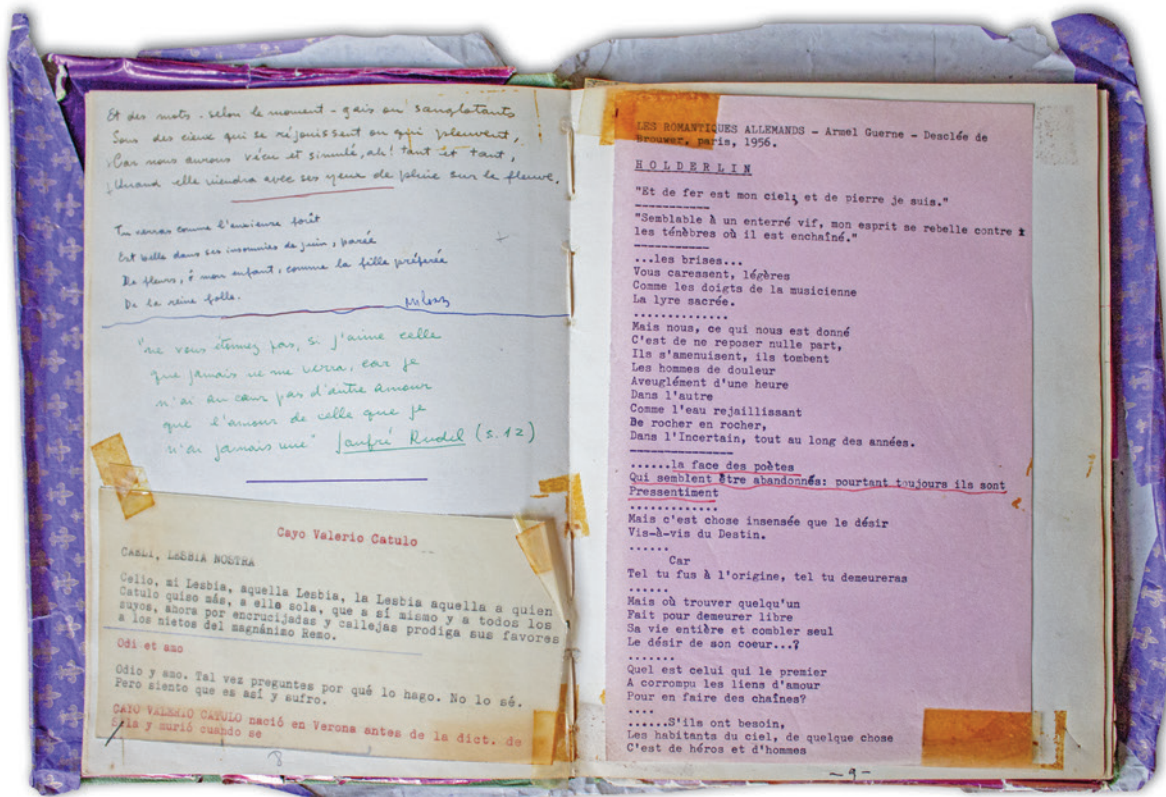 Et des mots - selon le moment - gais ou sanglotants
Sous des cieux qui se réjouissent ou qui pleuvent,
Car nous aurons vécu et simulé, ah! tant et tant,
Quand elle viendra avec ses yeux de pluie sur le fleuve.
Tu verras comme l'ancienne forêt
Est belle dans ses insomnies de juin, parée
De fleurs, ô mon enfant, comme la fille préparée
De la reine folle.
Milosz
"ne vous étonnez pas, si j'aime celle
que jamais ne me verra, car je
n'ai au cœur pas d'autre amour
que l'amour de celle que je
n'ai jamais vue" Jaufré Rudel (s. 12)
Cayo Valerio Catulo
CAELI, LESBIA NOSTRA
Celio, mi Lesbia, aquella Lesbia, la Lesbia aquella a quien
Catulo quiso más, a ella sola, que a sí mismo y a todos los
suyos, ahora por encrucijadas y callejas prodiga sus favores
a los nietos del magnánimo Remo.
Odi et amo
Odio y amo. Tal vez preguntes por qué lo hago. No lo sé.
Pero siento que es así y sufro.
CAYO VALERIO CATULO nació en Verona antes de la dict. de
Sila y murió cuando se
8
LES ROMANTIQUES ALLEMANDS - Armel Guerne - Desclée de
Brouwer, paris, 1956.
HOLDERLIN
"Et de fer est mon ciel, et de pierre je suis."
-----------
"Semblable à un enterré vif, mon esprit se rebelle contre
les ténèbres où il est enchaîné."
-----------
...les brises...
Vous caressent, légères
Comme les doigts de la musicienne
La lyre sacrée.
.............
Mais nous, ce qui nous est donné
C'est de ne reposer nulle part,
Ils s'amenuisent, ils tombent
Les hommes de douleur
Aveuglément d'une heure
Dans l'autre
Comme l'eau rejaillissant
De rocher en rocher,
Dans l'Incertain, tout au long des années.
---------------
......la face des poètes
Qui semblent être abandonnés: pourtant toujours ils sont
Pressentiment
.............
Mais c'est chose insensée que le désir
Vis-à-vis du Destin.
......
Car
Tel tu fus à l'origine, tel tu demeureras
......
Mais où trouver quelqu'un
Fait pour demeurer libre
Sa vie entière et combler seul
Le désir de son coeur...?
.......
Quel est celui qui le premier
A corrompu les liens d'amour
Pour en faire des chaînes?
....
......S'ils ont besoin,
Les habitants du ciel, de quelque chose
C'est de héros et d'hommes
-9-